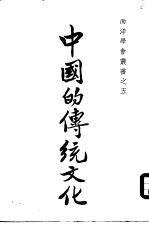 南洋學會叢書之五
中國的傳統文化